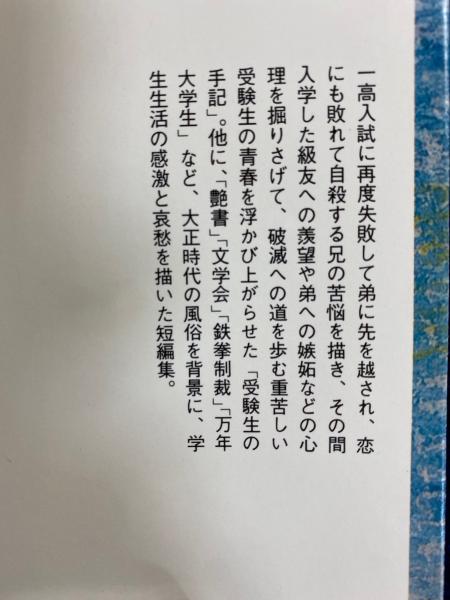 一高入試に再度失敗して弟に先を越され、恋
にも敗れて自殺する兄の苦悩を描き、その間
入学した級友への羨望や弟への嫉妬などの心
理を掘りさげて、破滅への道を歩む重苦しい
受験生の青春を浮かび上がらせた「受験生の
手記」。他に、「艶書」「文学会」「鉄拳制裁」「万年
大学生」など、大正時代の風俗を背景に、学
生生活の感激と哀愁を描いた短編集。